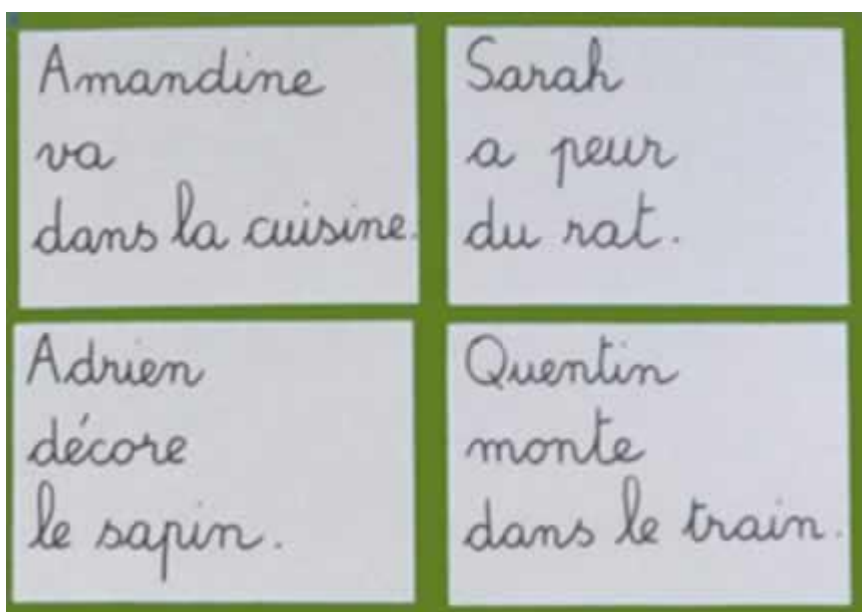 Amandine
va
dans la cuisine.
Sarah
a peur
du rat.
Adrien
décore
le sapin.
Quentin
monte
dans le train.